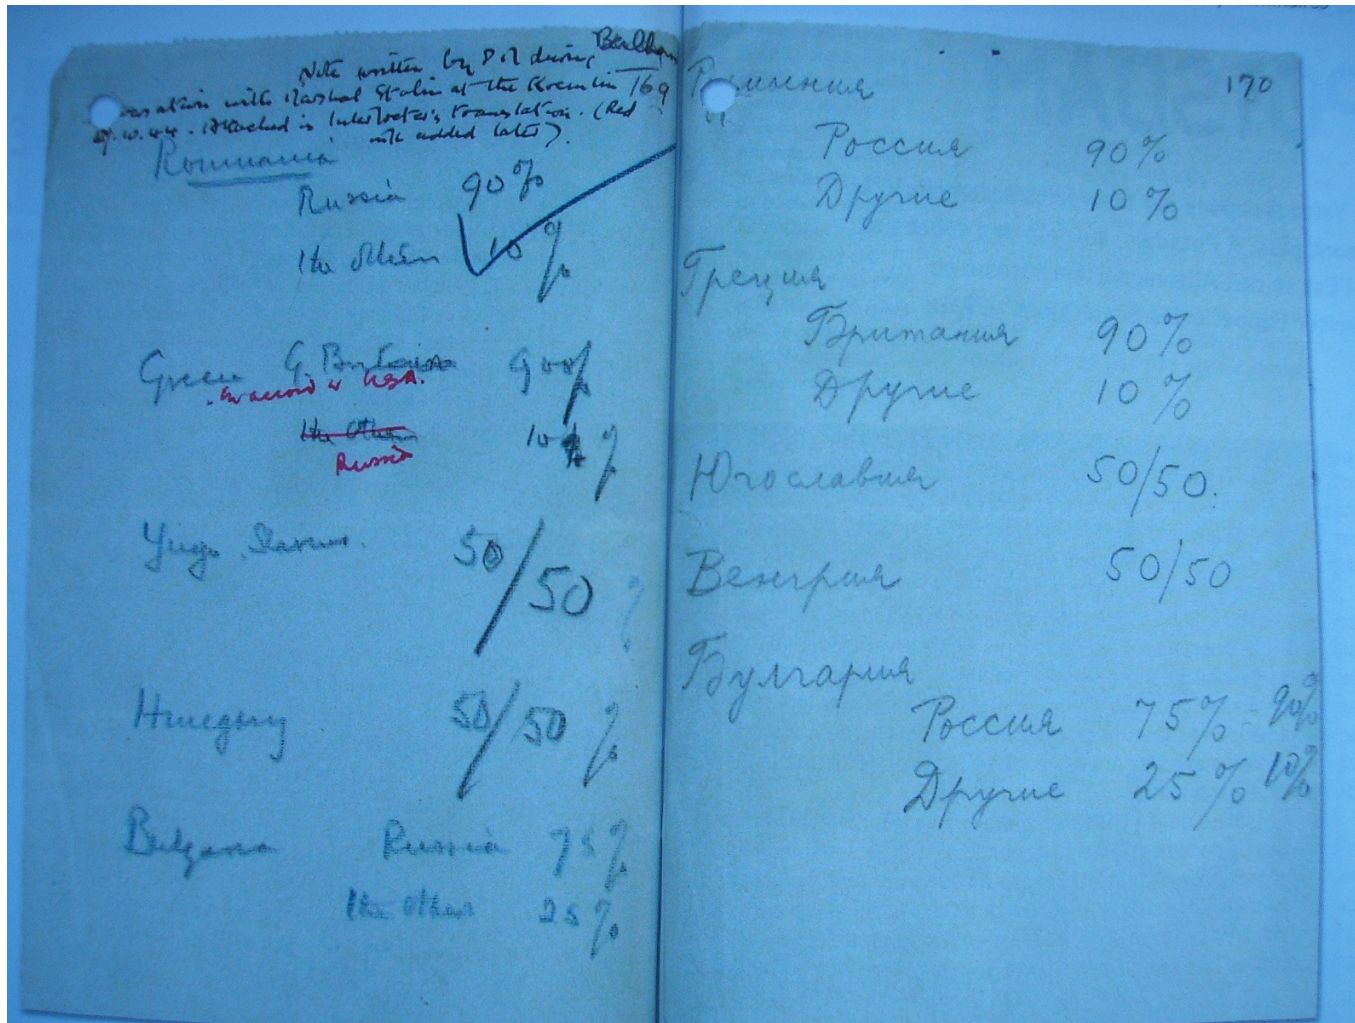 Note written by P.M during
conversation with Marshal Stalin at the Kremlin 169
9.10.44. Attached is Interpreter's translation. (Red
ink added later).
Roumania
Russia 90%
The others 10%
Greece G. Britain 90%
in accord w USA.
The Others 10%
Russia
Yugo Slavia. 50/50 %
Hungary 50/50 %
Bulgaria Russia 75%
The others 25%
170
Румыния
Россия 90%
Другие 10%
Греция
Британия 90%
Другие 10%
Югославия 50/50.
Венгрия 50/50
Булгария
Россия 75% 90%
Другие 25% 10%